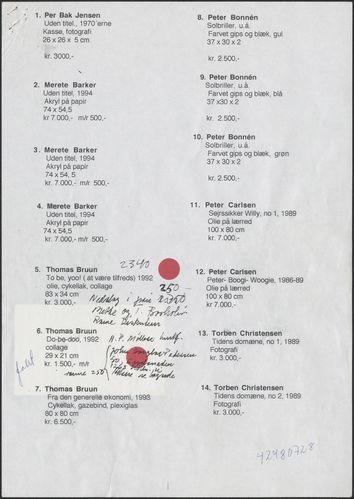 1. Per Bak Jensen
Uden titel, 1970'erne
Kasse, fotografi
26 x 26 x 5 cm
kr. 3000,-
2. Merete Barker
Uden titel, 1994
Akryl på papir
74 x 54,5
kr 7.000,- m/r 500,-
3. Merete Barker
Uden titel, 1994
Akryl på papir
74 x 54, 5
kr. 7.000,- m/r 500,-
4. Merete Barker
Uden titel, 1994
Akryl på papir
74 x 54,5
kr. 7.000,- m/r 500,-
2340
5. Thomas Bruun
To be, yoo! ( at være tilfreds) 1992
olie, cykellak, collage
83 x 34 cm
kr. 3.000,-
250 -
Nedslag i pris
6. Thomas Bruun
Do-be-doo, 1992
collage
29 x 21 cm
kr. 1.500,- m/r
ramme 250
7. Thomas Bruun
Fra den generelle økonomi, 1993
Cykellak, gazebind, plexiglas
80 x 80 cm
kr. 6.500,-
8. Peter Bonnén
Solbriller, u.å.
Farvet gips og blæk, gul
37 x 30 x 2
kr. 2.500,-
9. Peter Bonnén
Solbriller, u.å.
Farvet gips og blæk, blå
37 x30 x 2
kr. 2.500,-
10. Peter Bonnén
Solbriller, u.å.
Farvet gips og blæk, grøn
37 x 30 x 2
kr. 2.500,-
11. Peter Carlsen
Sejrssikker Willy, no 1, 1989
Olie på lærred
100 x 80 cm
kr. 7.000,-
12. Peter Carlsen
Peter- Boogi- Woogie, 1986-89
Olie på lærred
100 x 80 cm
kr 7.000,-
13. Torben Christensen
Tidens domæne, no 1, 1989
Fotografi
kr. 3.000,-
14. Torben Christensen
Tidens domæne, no 2, 1989
Fotografi
kr. 3.000,-
42480728